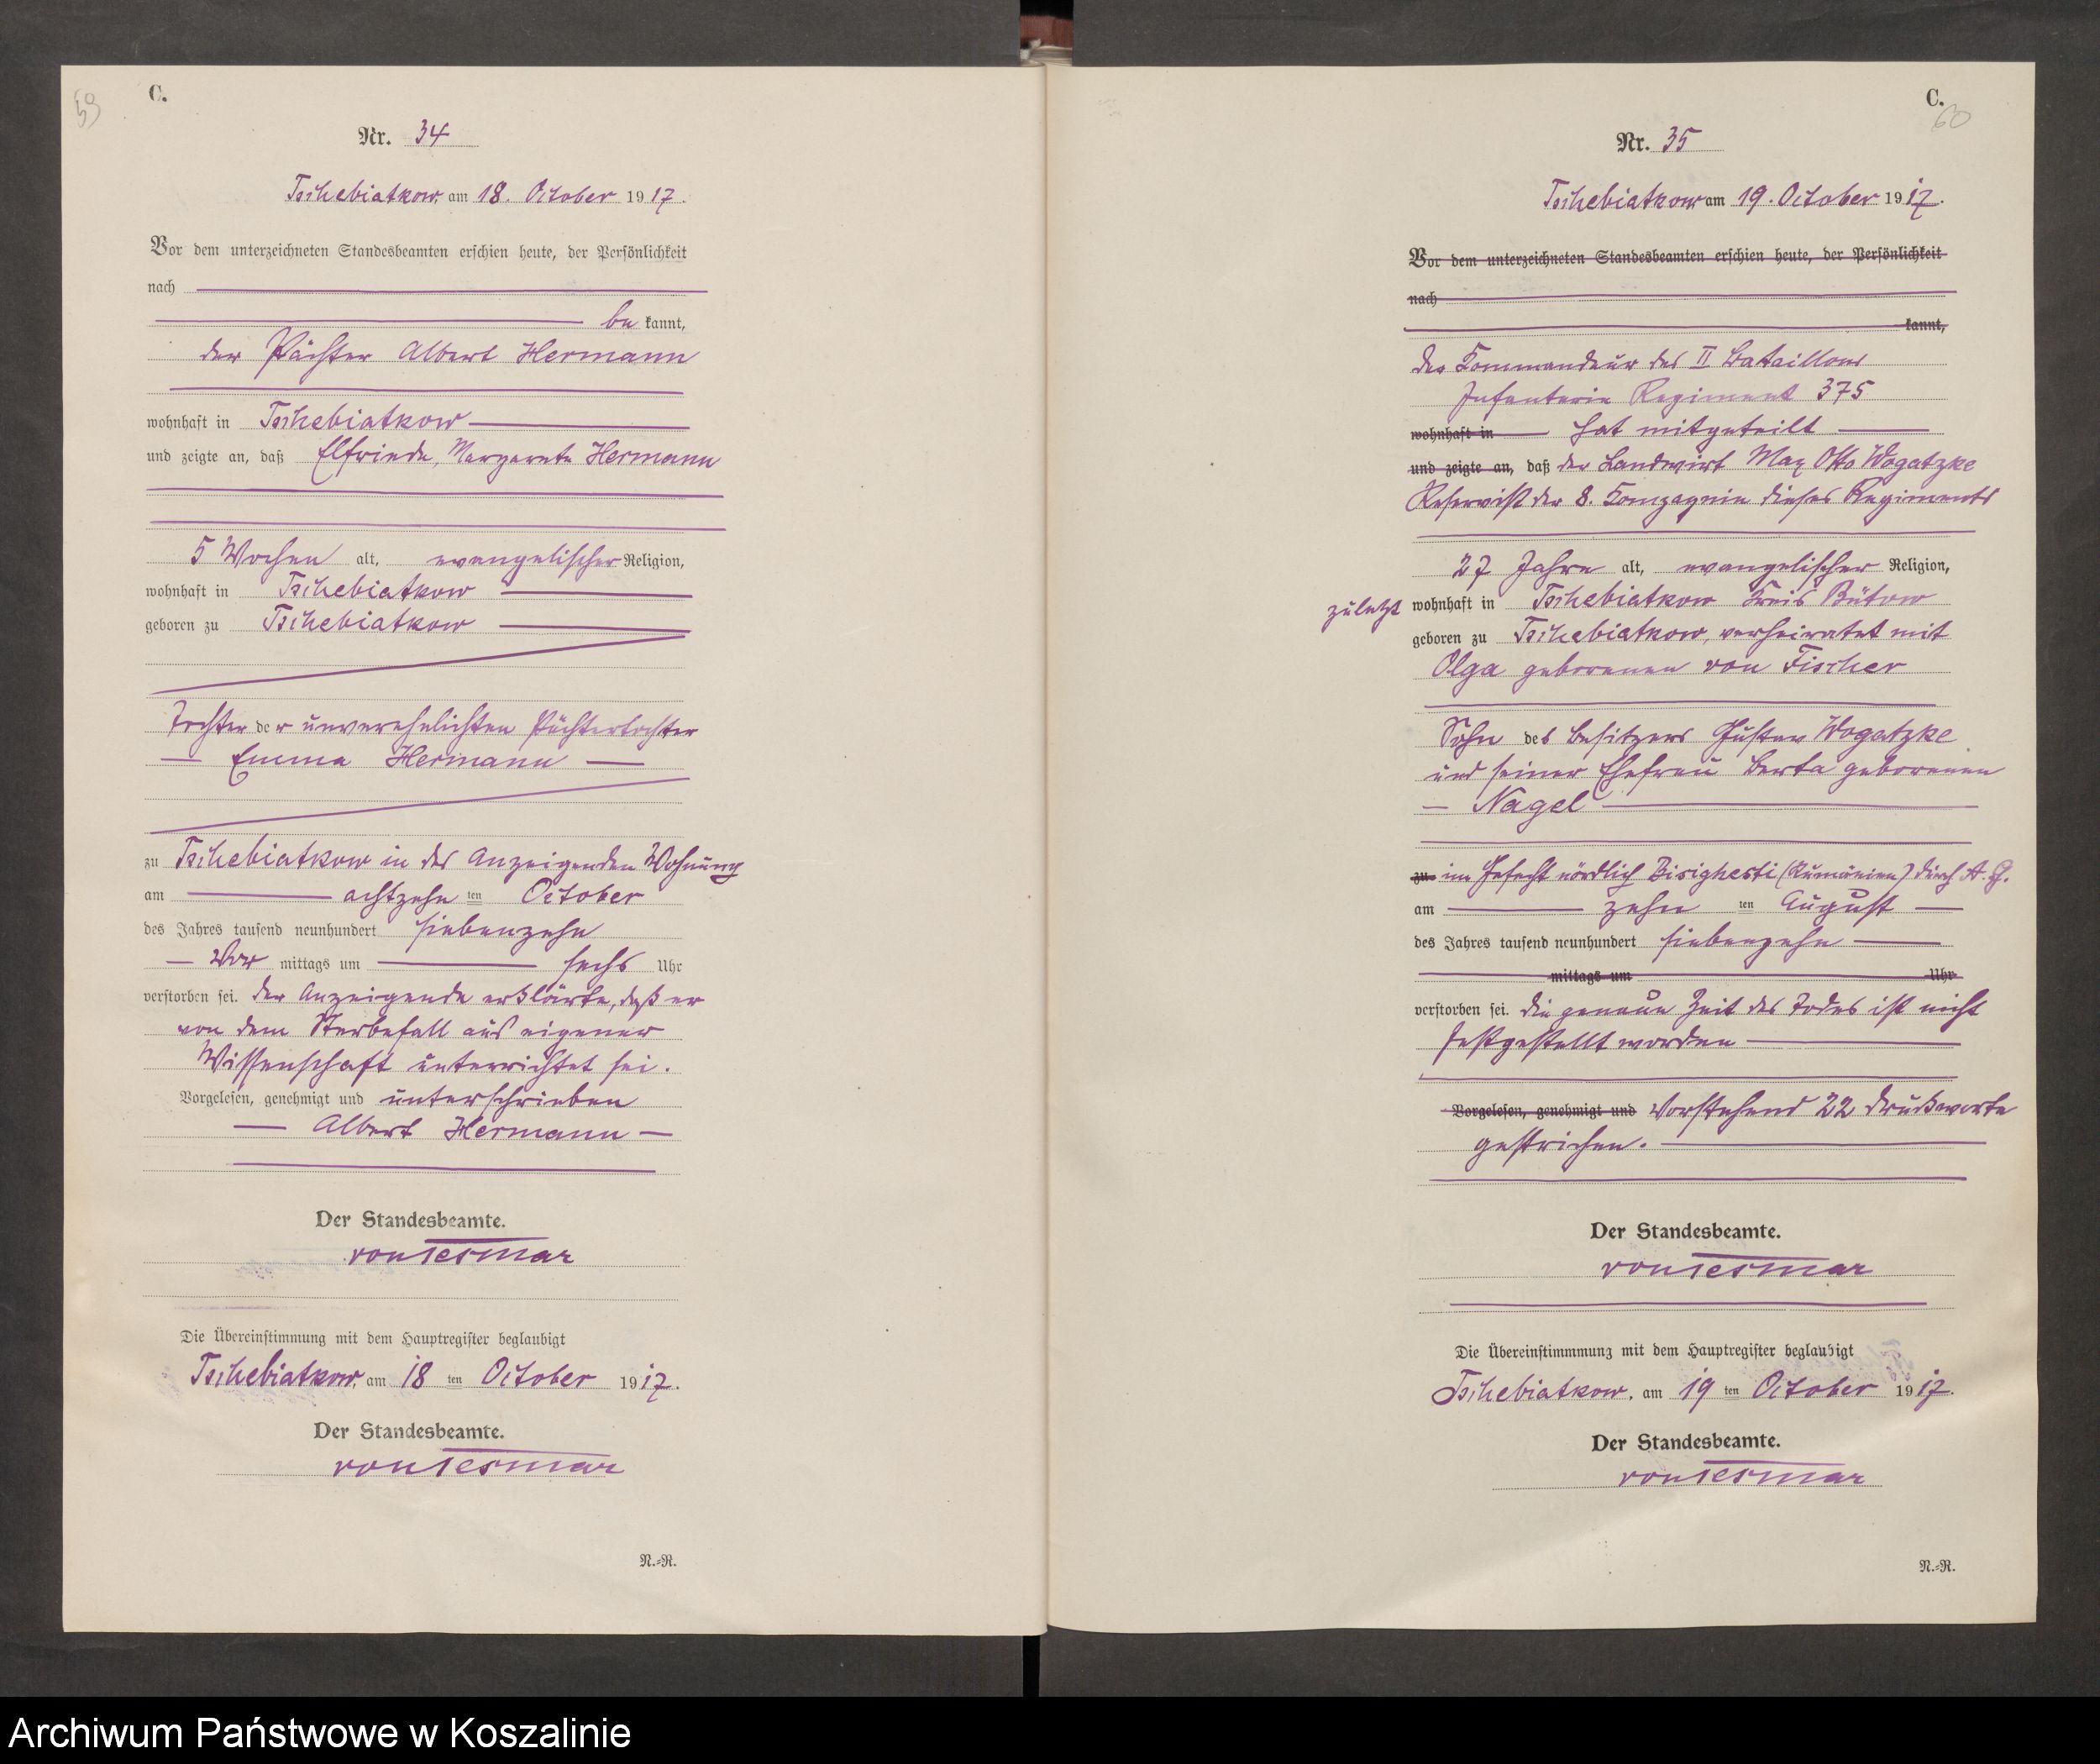 59
C.
Nr. 34
Tschebiatkow, am 18. October 1917.
Vor dem unterzeichneten Standesbeamten erschien heute, der Persönlichkeit
nach
be kannt,
der Pächter Albert Hermann
wohnhaft in Tschebiatkow
und zeigte an, daß Elfriede, Margarete Hermann
5 Wochen alt, evangelischer Religion,
wohnhaft in Tschebiatkow
geboren zu Tschebiatkow
Tochter der unverehelichten Pächtertochter
Emma Hermann
zu Tschebiatkow in des Anzeigenden Wohnung
am achtzehn ten October
des Jahres tausend neunhundert siebenzehn
Vor mittags um sechs Uhr
verstorben sei. Der Anzeigende erklärte, daß er
von dem Sterbefall aus eigener
Wissenschaft unterrichtet sei.
Vorgelesen, genehmigt und unterschrieben
Albert Hermann
Der Standesbeamte.
von Tesmar
Die Übereinstimmung mit dem Hauptregister beglaubigt
Tschebiatkow, am 18 ten October 1917.
Der Standesbeamte.
von Tesmar
N.=R.
C.
60
Nr. 35
Tschebiatkow am 19. October 1917.
Vor dem unterzeichneten Standesbeamten erschien heute, der Persönlichkeit
nach
kannt,
Der Kommandeur des II Bataillons
Infanterie Regiment 375
wohnhaft in hat mitgeteilt
und zeigte an, daß der Landwirt Max Otto Wogatzke
Reservist der 8. Kompagnie dieses Regiments
27 Jahre alt, evangelischer Religion,
zuletzt wohnhaft in Tschebiatkow Kreis Bütow
geboren zu Tschebiatkow, verheiratet mit
Olga geborenen von Fischer
Sohn des Besitzers Gustav Wogatzke
und seiner Ehefrau Berta geborenen
Nagel
zu im Gefecht nördlich Bisighesti (Rumänien) durch A. G.
am zehn ten August
des Jahres tausend neunhundert siebenzehn
mittags um Uhr
verstorben sei. Die genaue Zeit des Todes ist nicht
festgestellt worden
Vorgelesen, genehmigt und Vorstehend 22 Druckworte
gestrichen.
Der Standesbeamte.
von Tesmar
Die Übereinstimmmung mit dem Hauptregister beglaubigt
Tschebiatkow, am 19 ten October 1917.
Der Standesbeamte.
von Tesmar
N.=R.
Archiwum Państwowe w Koszalinie